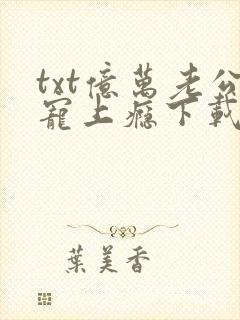 txt億萬老公
寵上癮下載
葉美香